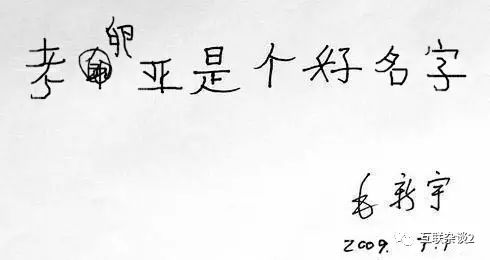 考卵亚是个好名字
毛新宇
2009. 7.1
互联杂谈2